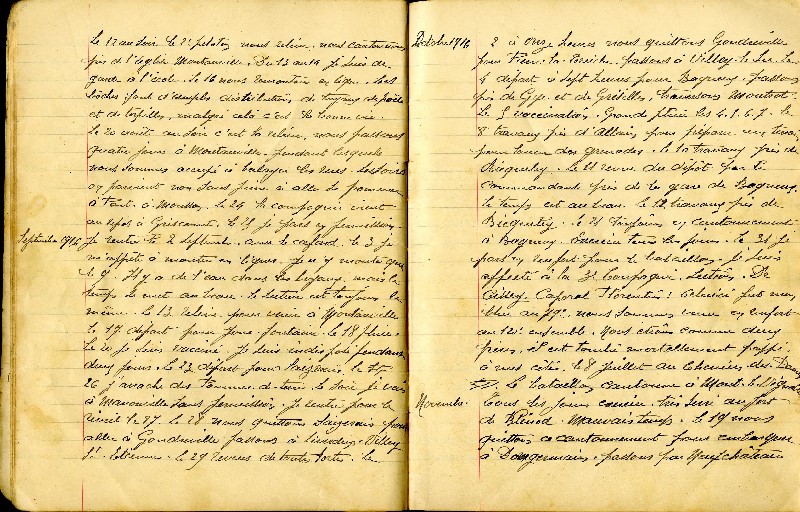 Le 12 au soir le 2e peloton nous relève, nous cantonnons
près de l'église Montauville. Du 13 au 14 je suis de
garde à l'école. Le 16 nous remontons en ligne. Les
boches font d'amples distributions de tuyaux de poële
et de torpilles, malgré celà c'est la bonne vie.
Le 20 août au soir c'est la relève, nous passons
quatre jours à Montauville, pendant lesquels
nous sommes occupé à balayer les rues. Les soirs
en passent non sans peine si aller se promener
à Pont à Mousson. Le 24 la compagnie vient
au repos à Griscourt. Le 25 je pars en permission.
Septembre 1916
Je rentre le 2 septembre avec le cafard. Le 3 je
m'apprête à monter en lignes. Je n'y monte que
le 9. Il y a de l'eau dans les boyaux, mais le
temps se met au beau. Le secteur est toujours le
même. Le 13 relève pour venir à Montauville
le 17 départ pour Jesu fontaine. Le 18 pluie.
Le 20 je suis vacciné. Je suis indisposé pendant
deux jours. Le 23 départ pour Saizerais. Le 25
26 j'arrache des pommes de terre. Le soir je vais
à Manonville sans permission, je rentre pour le
réveil le 27. Le 28 nous quittons Saizerais pour
aller à Gondreville passons à Liverdun, Villey
St Etienne. Le 29 revues de toutes sortes. Le
Octobre 1916
2 à onze heures nous quittons Gondreville
pour passons à Villey le Sec. Le
4 départ à sept heures pour Bagneux, passons
près de Gye et de traversons Moutrot.
Le 5 vaccination. Grande pluie les 4. 5. 6. 7. Le
8 travaux près d'Allain, pour préparer un terrain
pour lancer des grenades. Le 10 travaux près de
Le 11 revue du dépôt par le
commandant près de la gare de Bagneux,
le temps est au beau. Le 12 travaux près de
Le 21 toujours en cantonnement
à Bagneux. Exercice tous les jours. Le 31 je
pars en renfort pour le bataillon. Je suis
affecté à la 3e compagnie.
Caporal Florentin
au 79e. nous sommes venu en renfort
au 12e ensemble. Nous étions comme deux
frères, il est tombé mortellement frappé
à mes côtés. le 8 juillet au Chemin des Dames
Le bataillon cantonne à Mont le Vignoble
Novembre
Tous les jours corvée. très loin au fort
de Blénod. Mauvais temps. Le 19 nous
quittons ce cantonnement pour embarquer
à Domgermain, passons par Neufchâteau